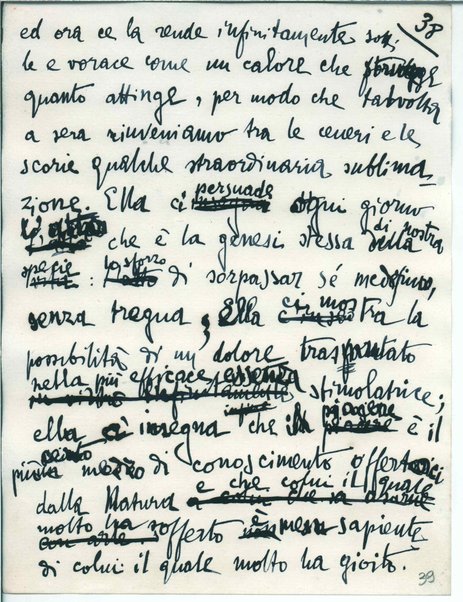 38
ed ora ce la rende infinitamente sotti
le e vorace come un calore che strugge
quanto attinge, per modo che talvolta
a sera rinveniamo tra le ceneri e le
scorie qualche straordinaria sublima-
zione. Ella ci persuade ogni giorno
l'atto che è la genesi stessa di nostra
specie: lo sforzo di sorpassar sé medesimo,
senza tregua; Ella ci mostra la
possibilità di un dolore trasmutato
nella più efficace essenza stimolatrice;
ella ci insegna che il piacere è il
più certo mezzo di conoscimento offertoci
dalla Natura e che colui il quale
molto ha sofferto è men sapiente
di colui il quale molto ha gioito.
39